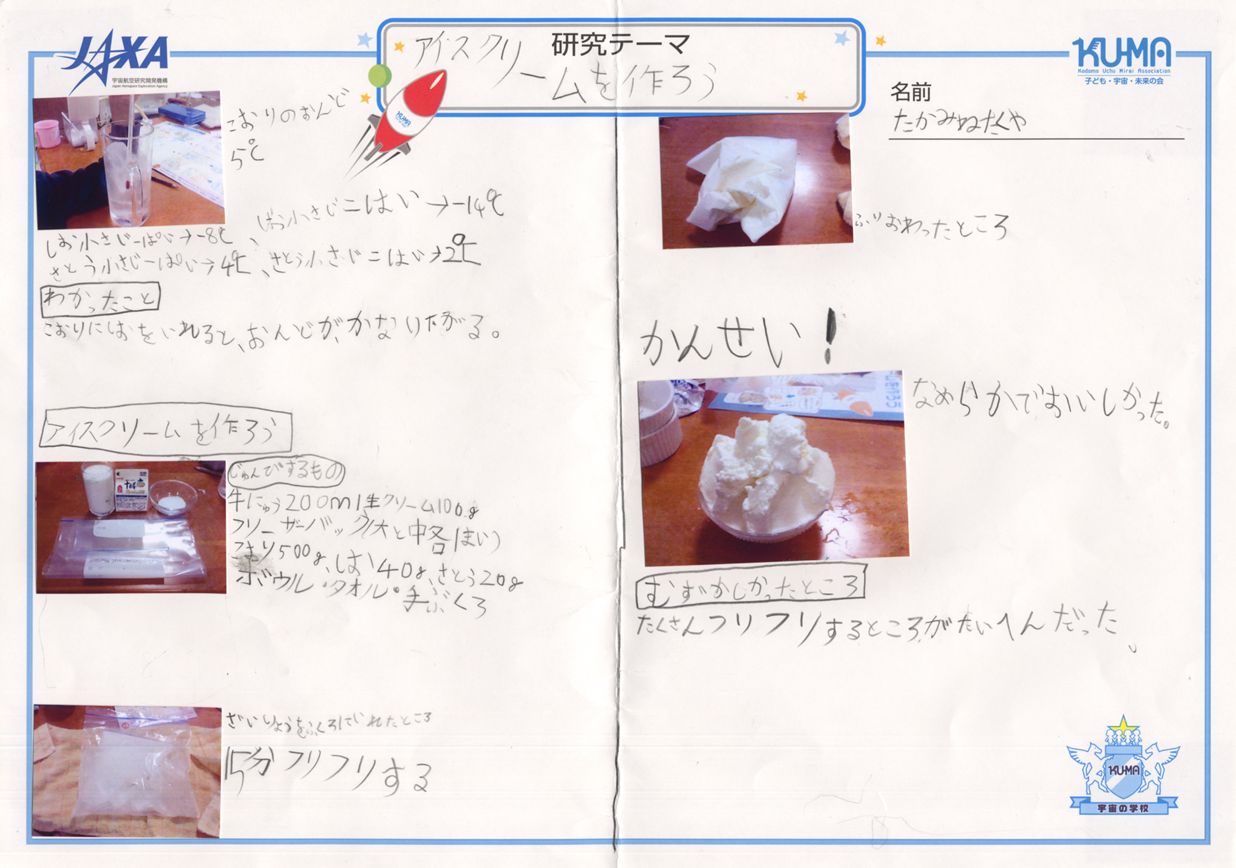 JAXA
宇宙航空研究開発機構
Japan Aerospace Exploration Agency
研究テーマ
アイスクリ
ームを作ろう
KU-MA
Kodomo Uchu Mirai Association
子ども・宇宙・未来の会
名前
たかみねたくや
こおりのおんど
5℃
しお小さじ一ぱい→-8℃、しお小さじ二はい→-14℃
さとう小さじ一ぱい→4℃、さとう小さじ二はい→2℃
わかったこと
こおりにしおをいれると、おんどが、かなりたがる。
アイスクリームを作ろう
じゅんびするもの
牛にゅう200ml生クリーム100g
フリーザーバック大と中各1まいづつ
こおり500g、しお40g、さとう20g
ボウル・タオル・手ぶくろ
ざいりょうをふくろにいれたところ
15分フリフリする
ふりおわったところ
かんせい!
なめらかでおいしかった。
むずかしかったところ
たくさんフリフリするところがたいへんだった。
KU-MA
宇宙の学校